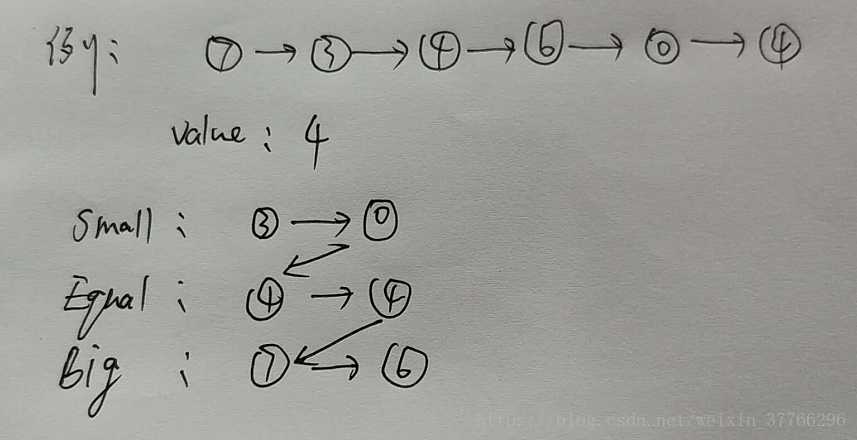 例: ⑦ → ③ → ④ → ⑥ → ⓪ → ④
value: 4
Small: ③ → ⓪
Equal: ④ → ④
Big: ⑦ → ⑥
https://blog.csdn.net/weixin_37766296